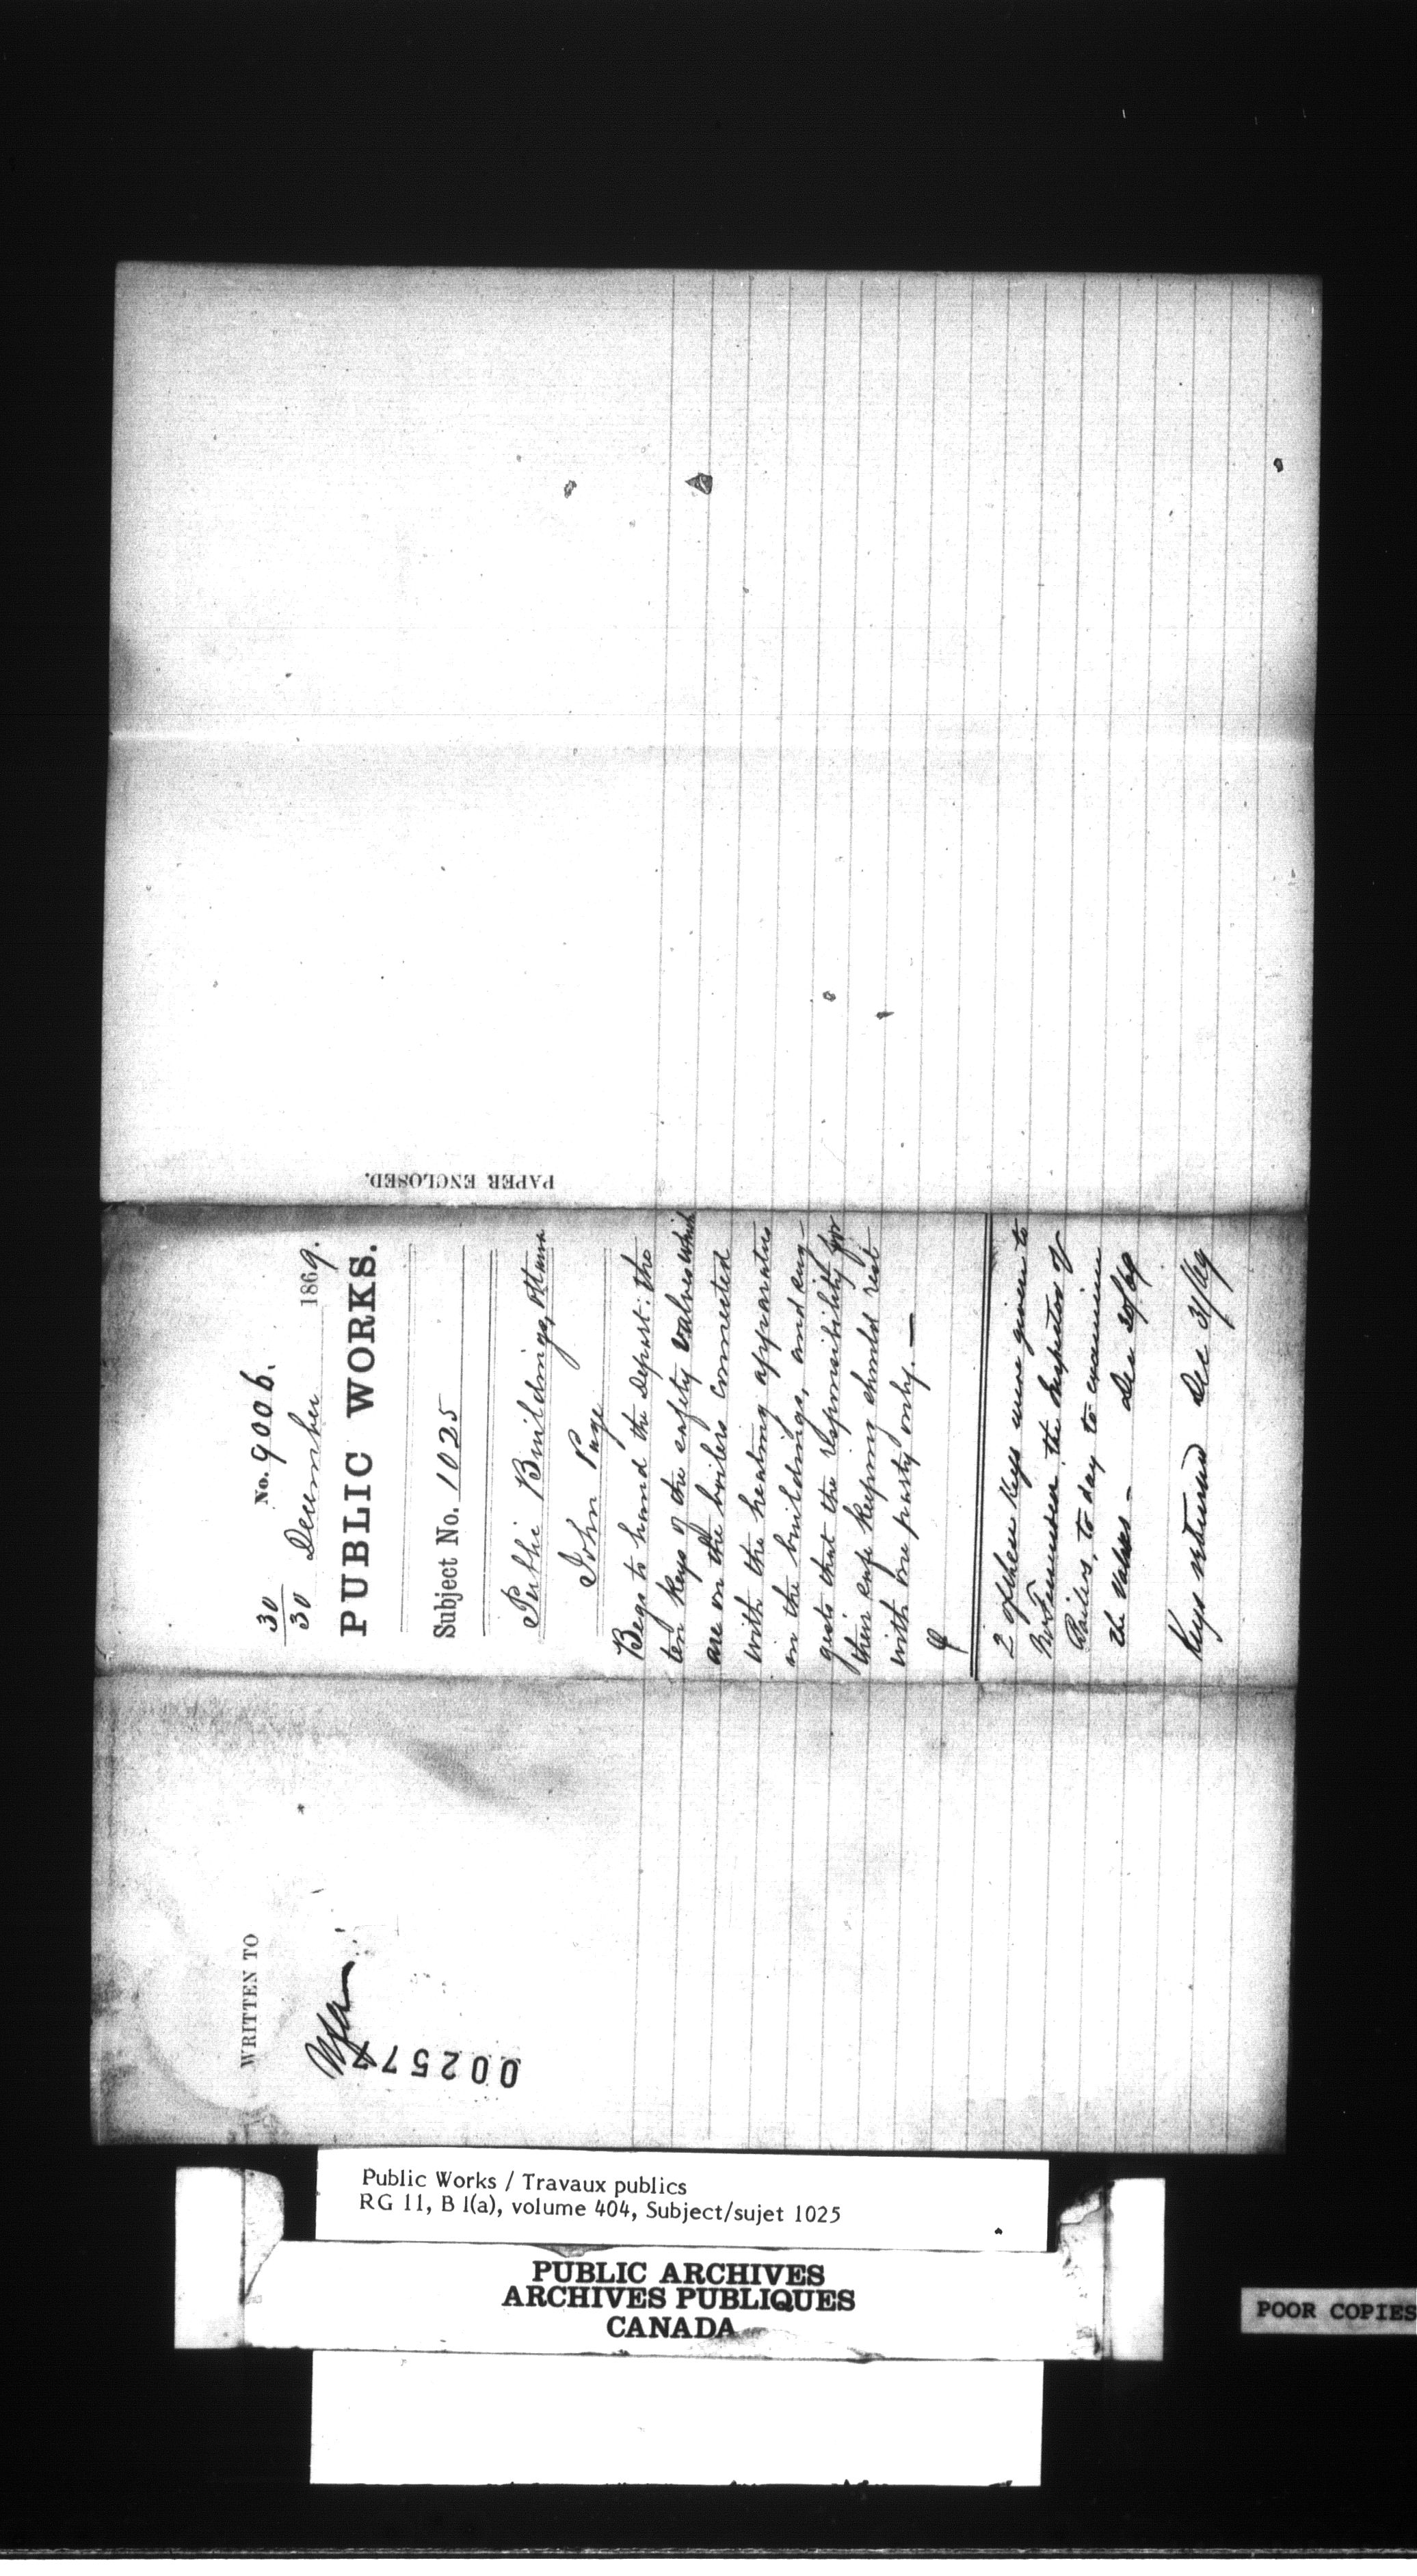 No. 9006.
30
30 December 1869.
PUBLIC WORKS.
Subject No. 1025
Public Buildings, Ottawa
John Page
Begs to hand the Depart: the
ten keys of the safety valves which
are on the boilers connected
with the heating apparatus
in the buildings, and sug-
gests that the responsibility for
their safe keeping should rest
with one party only. —
2 of these keys were given to
the Inspector of
Boilers, to day to examine
the valves — Dec 30/69
Keys returned Dec 31/69
PAPER ENCLOSED.
WRITTEN TO
002577
Public Works / Travaux publics
RG 11, B 1(a), volume 404, Subject/sujet 1025
PUBLIC ARCHIVES
ARCHIVES PUBLIQUES
CANADA
POOR COPIES